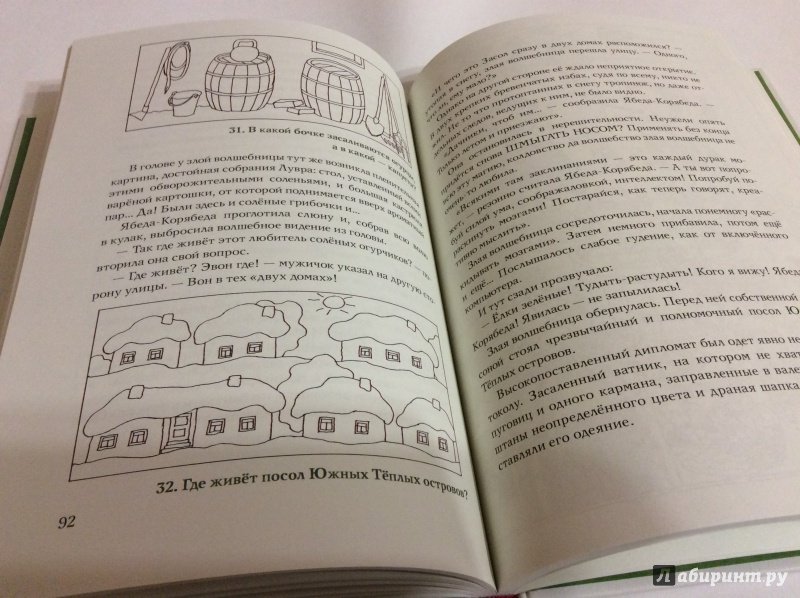 31. В какой бочке засаливаются огурцы,
а в какой —
В голове у злой волшебницы тут же возникла пленительная
картина, достойная собрания Лувра: стол, уставленный всеми
этими обворожительными соленьями, и большая кастрюля
варёной картошки, от которой поднимается вверх ароматный
пар... Да! Были здесь и солёные грибочки и...
Ябеда-Корябеда проглотила слюну и, собрав всю волю
в кулак, выбросила волшебное видение из головы.
— Так где живёт этот любитель солёных огурчиков? — по-
вторила она свой вопрос.
— Где живёт? Эвон где! — мужичок указал на другую сто-
рону улицы. — Вон в тех «двух домах»!
32. Где живёт посол Южных Тёплых островов?
92
И чего это Засол сразу в двух домах расположился? —
злая волшебница перешла улицу. — Одного,
ему мало?
Однако на другой стороне её ждало неприятное открытие.
В двух крепких бревенчатых избах, судя по всему, никто не
Не то что протоптанных в снегу тропинок, но даже от-
следов, ведущих к ним, не было видно.
«Дачники, чтоб им... — сообразила Ябеда-Корябеда. —
Только летом и приезжают».
Она остановилась в нерешительности. Неужели опять
снова ШМЫГАТЬ НОСОМ? Применять без конца
эту магию, колдовство да волшебство злая волшебница не
любила.
«Всякими там заклинаниями — это каждый дурак мо-
жет, — резонно считала Ябеда-Корябеда. — А ты вот попро-
буй силой ума, соображаловкой, интеллектом! Попробуй по-
раскинуть мозгами! Постарайся, как теперь говорят, креа-
тивно мыслить».
Злая волшебница сосредоточилась, начала понемногу «рас-
кидывать мозгами». Затем немного прибавила, потом ещё
и ещё... Послышалось слабое гудение, как от включённого
компьютера.
И тут сзади прозвучало:
— Ёлки зелёные! Тудыть-растудыть! Кого я вижу! Ябеда-
Корябеда! Явилась — не запылилась!
Злая волшебница обернулась. Перед ней собственной
соной стоял чрезвычайный и полномочный посол Ю
Тёплых островов.
Высокопоставленный дипломат был одет явно не
токолу. Засаленный ватник, на котором не хват
пуговиц и одного кармана, заправленные в вале
штаны неопределённого цвета и драная шапка
ставляли его одеяние.
Лабиринт.ру